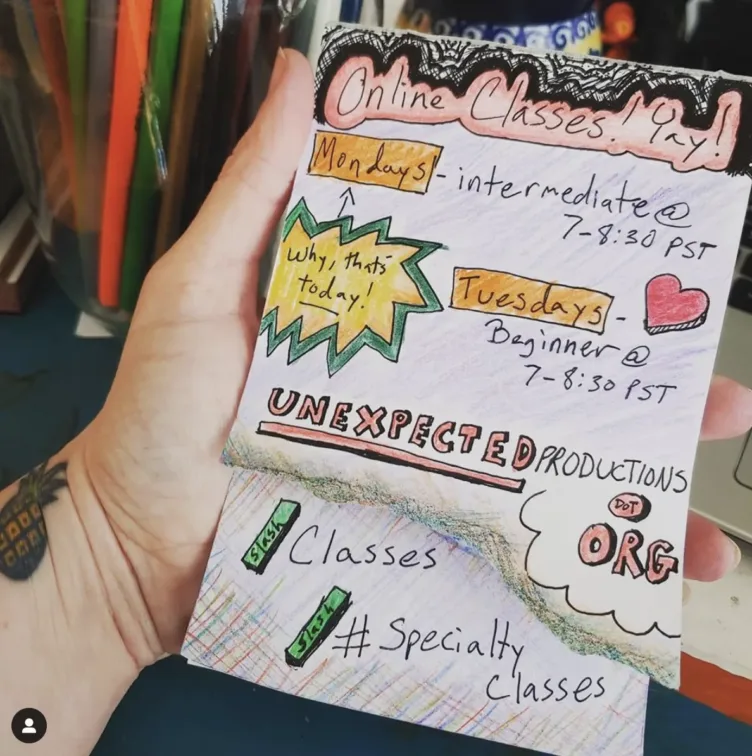 Online Classes! Yay!
Mondays! - intermediate @
7-8:30 PST
Why, that's
today!
Tuesdays -
Beginner @
7-8:30 PST
UNEXPECTED PRODUCTIONS
DOT
ORG
Slash Classes
Slash # Specialty
Classes